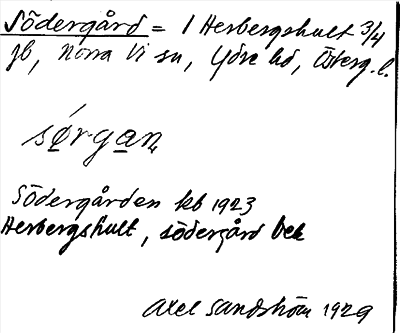 Södergård = 1 Herbergshult 3/4
jb, Norra Vi sn, Ydre hd, Österg. l.
sørgan
Södergården kb 1923
Herbergshult, södergård bek
Axel Sandström 1929